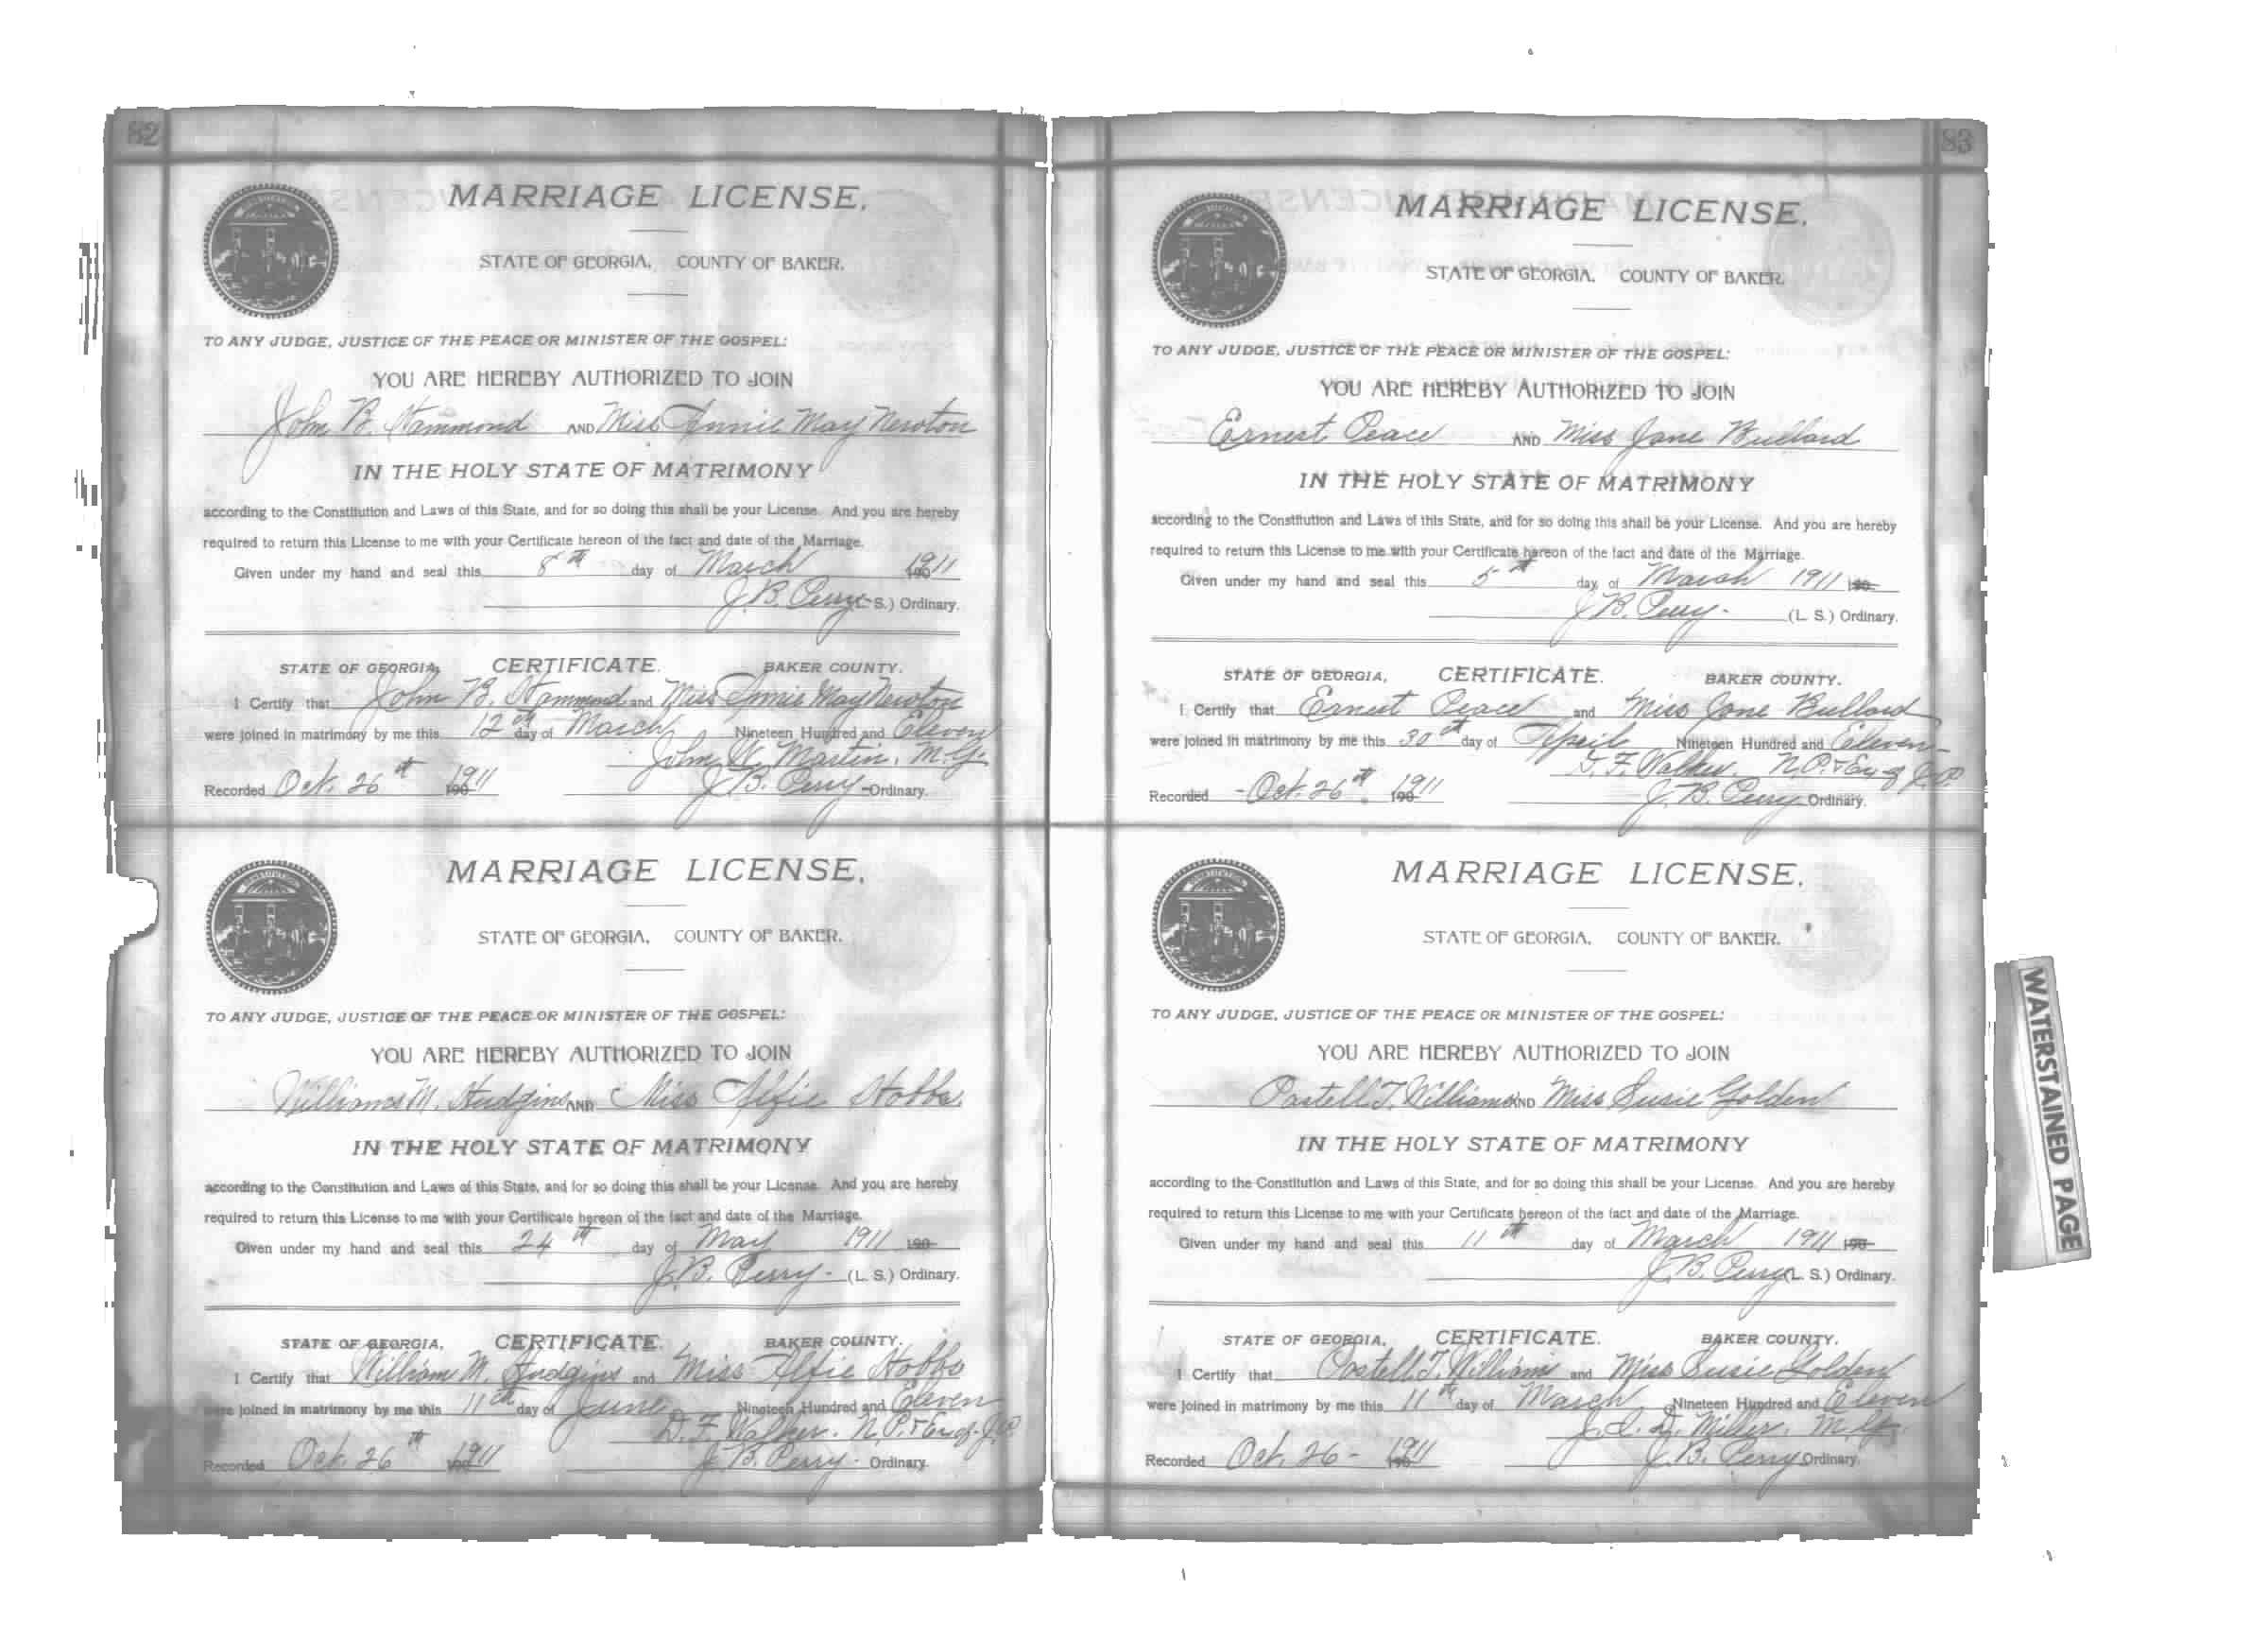 82
MARRIAGE LICENSE.
STATE OF GEORGIA, COUNTY OF BAKER.
TO ANY JUDGE, JUSTICE OF THE PEACE OR MINISTER OF THE GOSPEL:
YOU ARE HEREBY AUTHORIZED TO JOIN
John B. Hammond AND Miss Annie May Newton
IN THE HOLY STATE OF MATRIMONY
according to the Constitution and Laws of this State, and for so doing this shall be your License. And you are hereby
required to return this License to me with your Certificate hereon of the fact and date of the Marriage.
Given under my hand and seal this 8th day of March 1911
J. B. Perry (L. S.) Ordinary.
STATE OF GEORGIA, CERTIFICATE. BAKER COUNTY.
I Certify that John B. Hammond and Miss Annie May Newton
were joined in matrimony by me this 12th day of March Nineteen Hundred and Eleven
John W. Martin, M.G.
Recorded Oct. 26th 1911 J. B. Perry Ordinary.
MARRIAGE LICENSE.
STATE OF GEORGIA, COUNTY OF BAKER.
TO ANY JUDGE, JUSTICE OF THE PEACE OR MINISTER OF THE GOSPEL:
YOU ARE HEREBY AUTHORIZED TO JOIN
Williams M. Hudgins AND Miss Alfie Hobbs
IN THE HOLY STATE OF MATRIMONY
according to the Constitution and Laws of this State, and for so doing this shall be your License. And you are hereby
required to return this License to me with your Certificate hereon of the fact and date of the Marriage.
Given under my hand and seal this 24th day of May 1911 190
J. B. Perry. (L. S.) Ordinary.
STATE OF GEORGIA, CERTIFICATE. BAKER COUNTY.
I Certify that William M. Hudgins and Miss Alfie Hobbs
were joined in matrimony by me this 11th day of June Nineteen Hundred and Eleven
D. F. Walker. N.P. & Ex of. J.P.
Recorded Oct. 26th 1911 J. B. Perry. Ordinary.
83
MARRIAGE LICENSE.
STATE OF GEORGIA. COUNTY OF BAKER.
TO ANY JUDGE, JUSTICE OF THE PEACE OR MINISTER OF THE GOSPEL:
YOU ARE HEREBY AUTHORIZED TO JOIN
Ernest Peace AND Miss Jane Bullard
IN THE HOLY STATE OF MATRIMONY
according to the Constitution and Laws of this State, and for so doing this shall be your License. And you are hereby
required to return this License to me with your Certificate hereon of the fact and date of the Marriage.
Given under my hand and seal this 5th day of March 1911 190
J. B. Perry. (L. S.) Ordinary.
STATE OF GEORGIA, CERTIFICATE. BAKER COUNTY.
I Certify that Ernest Peace and Miss Jane Bullard
were joined in matrimony by me this 30th day of April Nineteen Hundred and Eleven
D. F. Walker. N.P. & Ex of J.P.
Recorded Oct. 26th. 1911 J. B. Perry Ordinary.
MARRIAGE LICENSE.
STATE OF GEORGIA, COUNTY OF BAKER.
TO ANY JUDGE, JUSTICE OF THE PEACE OR MINISTER OF THE GOSPEL:
YOU ARE HEREBY AUTHORIZED TO JOIN
Costell T. Williams AND Miss Susie Golden
IN THE HOLY STATE OF MATRIMONY
according to the Constitution and Laws of this State, and for so doing this shall be your License. And you are hereby
required to return this License to me with your Certificate hereon of the fact and date of the Marriage.
Given under my hand and seal this 11th day of March 1911 190
J. B. Perry (L. S.) Ordinary.
STATE OF GEORGIA, CERTIFICATE. BAKER COUNTY.
I Certify that Costell T. Williams and Miss Susie Golden
were joined in matrimony by me this 11th day of March Nineteen Hundred and Eleven
Miller. M.G.
Recorded Oct. 26 - 1911 J. B. Perry Ordinary.
WATERSTAINED PAGE